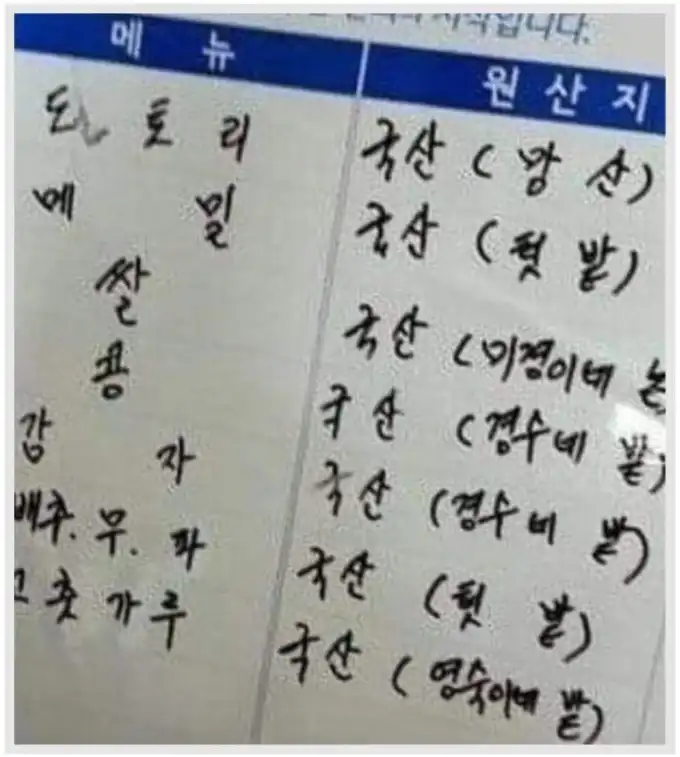 시작입니다.
메 뉴 원 산 지
도 토 리 국산 (앞 산)
메 밀 국산 (텃 밭)
쌀 국산 (미경이네 논
콩 국산 (경수네 밭)
감 자 국산 (경수네 밭)
배추. 무. 파 국산 (텃 밭)
고춧가루 국산 (영숙이네 밭)